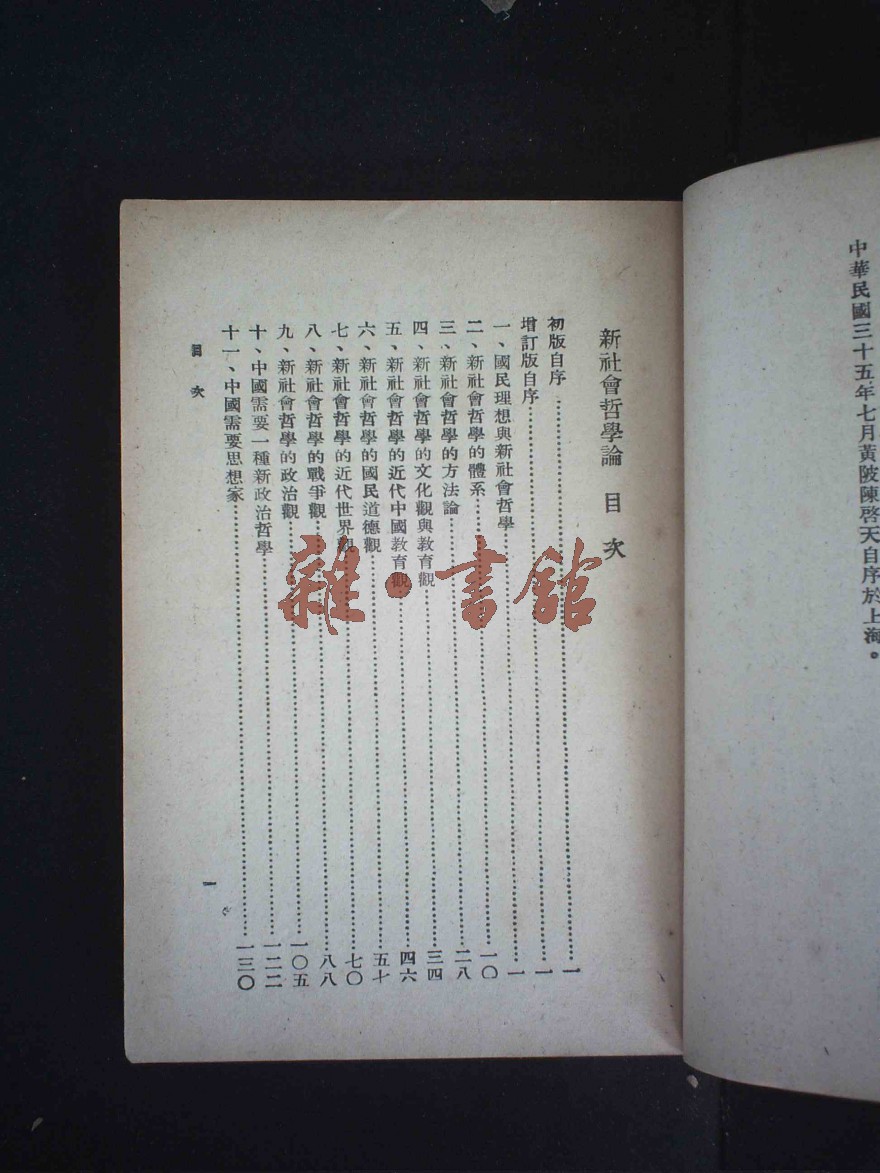 中華民國三十五年七月黃陂陳啓天自序於上海。
新社會哲學論 目次
初版自序…………一
增訂版自序…………一
一、國民理想與新社會哲學…………一
二、新社會哲學的體系…………一〇
三、新社會哲學的方法論…………二八
四、新社會哲學的文化觀與教育觀…………三四
五、新社會哲學的近代中國教育觀…………四六
六、新社會哲學的國民道德觀…………五七
七、新社會哲學的近代世界觀…………七〇
八、新社會哲學的戰爭觀…………八八
九、新社會哲學的政治觀…………一〇五
十、中國需要一種新政治哲學…………一二二
十一、中國需要思想家…………一三〇
目次
一
雜·書館